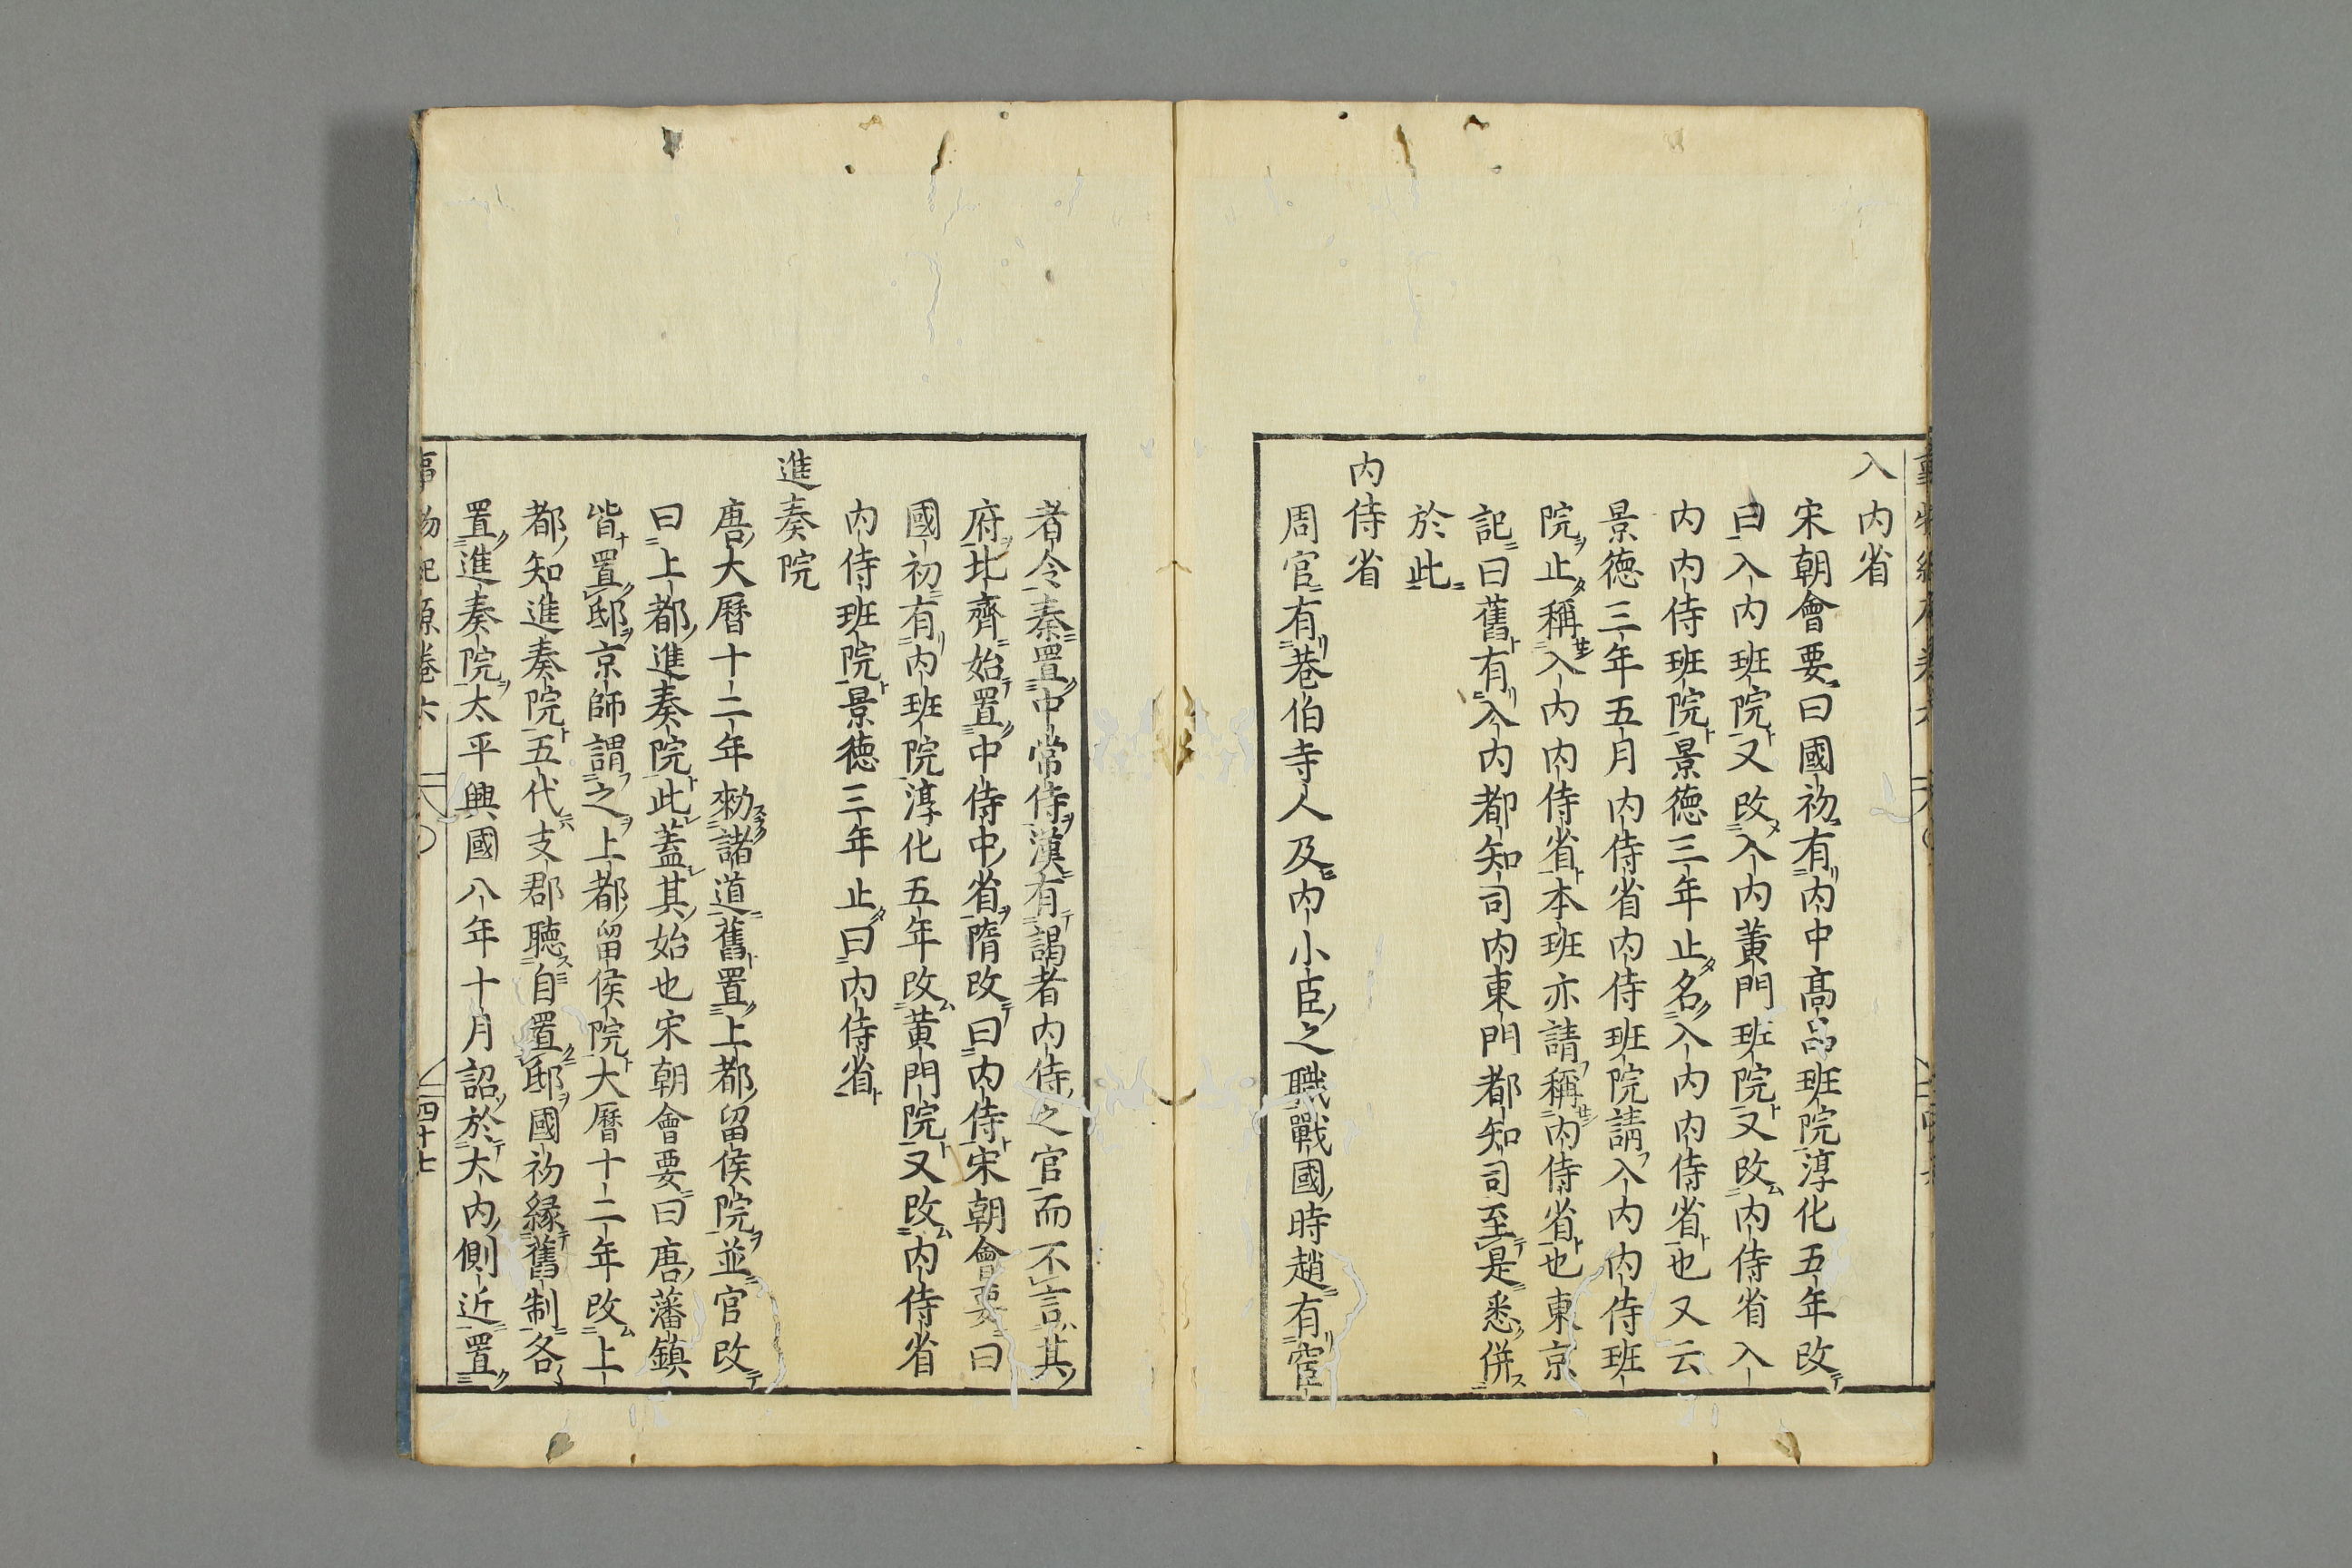 入内省
宋朝會要曰國初有内中髙品班院淳化五年改
曰入内班院又改入内黄門班院又改内侍省入
内内侍班院景徳三年止名入内内侍省也又云
景徳三年五月内侍省内侍班院請入内内侍班
院止稱入内内侍省本班亦請稱内侍省也東京
記曰舊有入内都知司内東門都知司至是悉併
於此
内侍省
周官有巷伯寺人及内小臣之職戰國時趙有宦
者令秦置中常侍漢有謁者内侍之官而不言其
府北齊始置中侍中省隋改曰内侍宋朝會要曰
國初有内班院淳化五年改黄門院又改内侍省
内侍班院景徳三年止曰内侍省
進奏院
唐大曆十二年勑諸道舊置上都留侯院並官改
曰上都進奏院此蓋其始也宋朝會要曰唐藩鎮
皆置邸京師謂之上都留侯院大曆十二年改上
都知進奏院五代支郡聴自置邸國初縁舊制各
置進奏院太平興國八年十月詔於大内側近置
事物紀原卷六
四十七